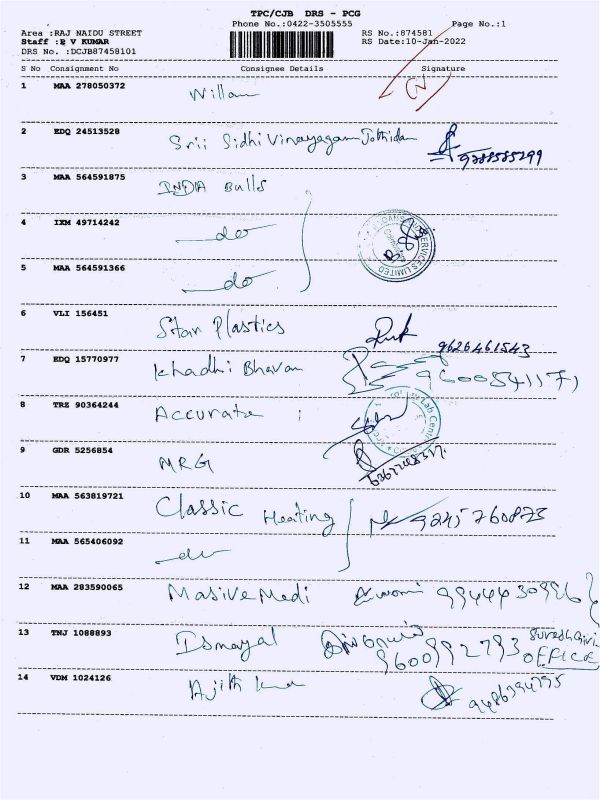 TPC/CJB DRS - PCG
Phone No.:0422-3505555 Page No.:1
Area :RAJ NAIDU STREET RS No.:874581
Staff :E V KUMAR RS Date:10-Jan-2022
DRS No. :DCJB87458101
S No Consignment No Consignee Details Signature
1 MAA 278050372
Willam
2 EDQ 24513528
Srii Sidhi Vinayagam Jothidam
3 MAA 564591875
INDIA Bulls
4 IXM 49714242
do
SERVICES LIMITED
5 MAA 564591366
do
6 VLI 156451
Star Plastics 9626461543
7 EDQ 15770977
Khadhi Bhavan 9600541171
8 TRZ 90364244
Accurate
Lab
9 GDR 5256854
MRG
10 MAA 563819721
Classic Heating 9245760873
11 MAA 565406092
do
12 MAA 283590065
Masive Medi
13 TNJ 1088893
Ismayal 9600992793 OFFICE
14 VDM 1024126
Ajith 9486394795